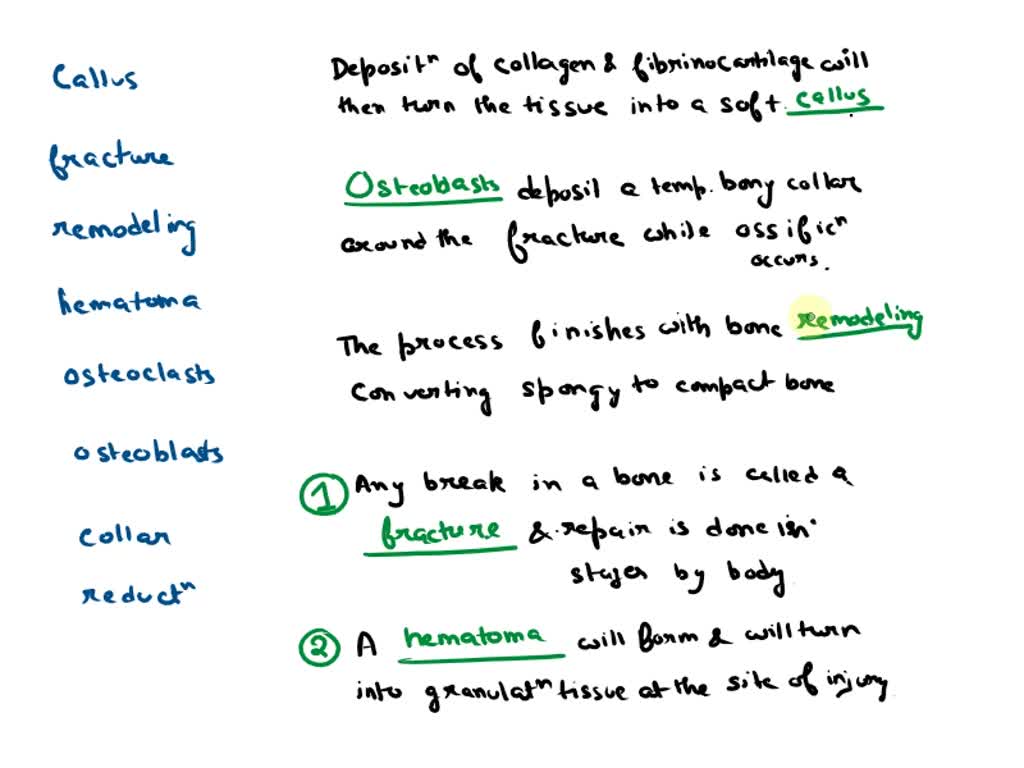 Callus
fracture
remodeling
hematoma
osteoclasts
osteoblasts
collar
reductⁿ
Depositⁿ of collagen & fibrinocartilage will
then turn the tissue into a soft callus
Osteobasts deposit a temp. bony collar
around the fracture while ossificⁿ
occurs.
The process finishes with bone remodeling
Converting spongy to compact bone
① Any break in a bone is called a
fracture & repair is done in
stages by body
② A hematoma will form & will turn
into granulatⁿ tissue at the site of injury